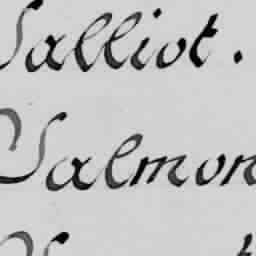 Salliot.
Salmon